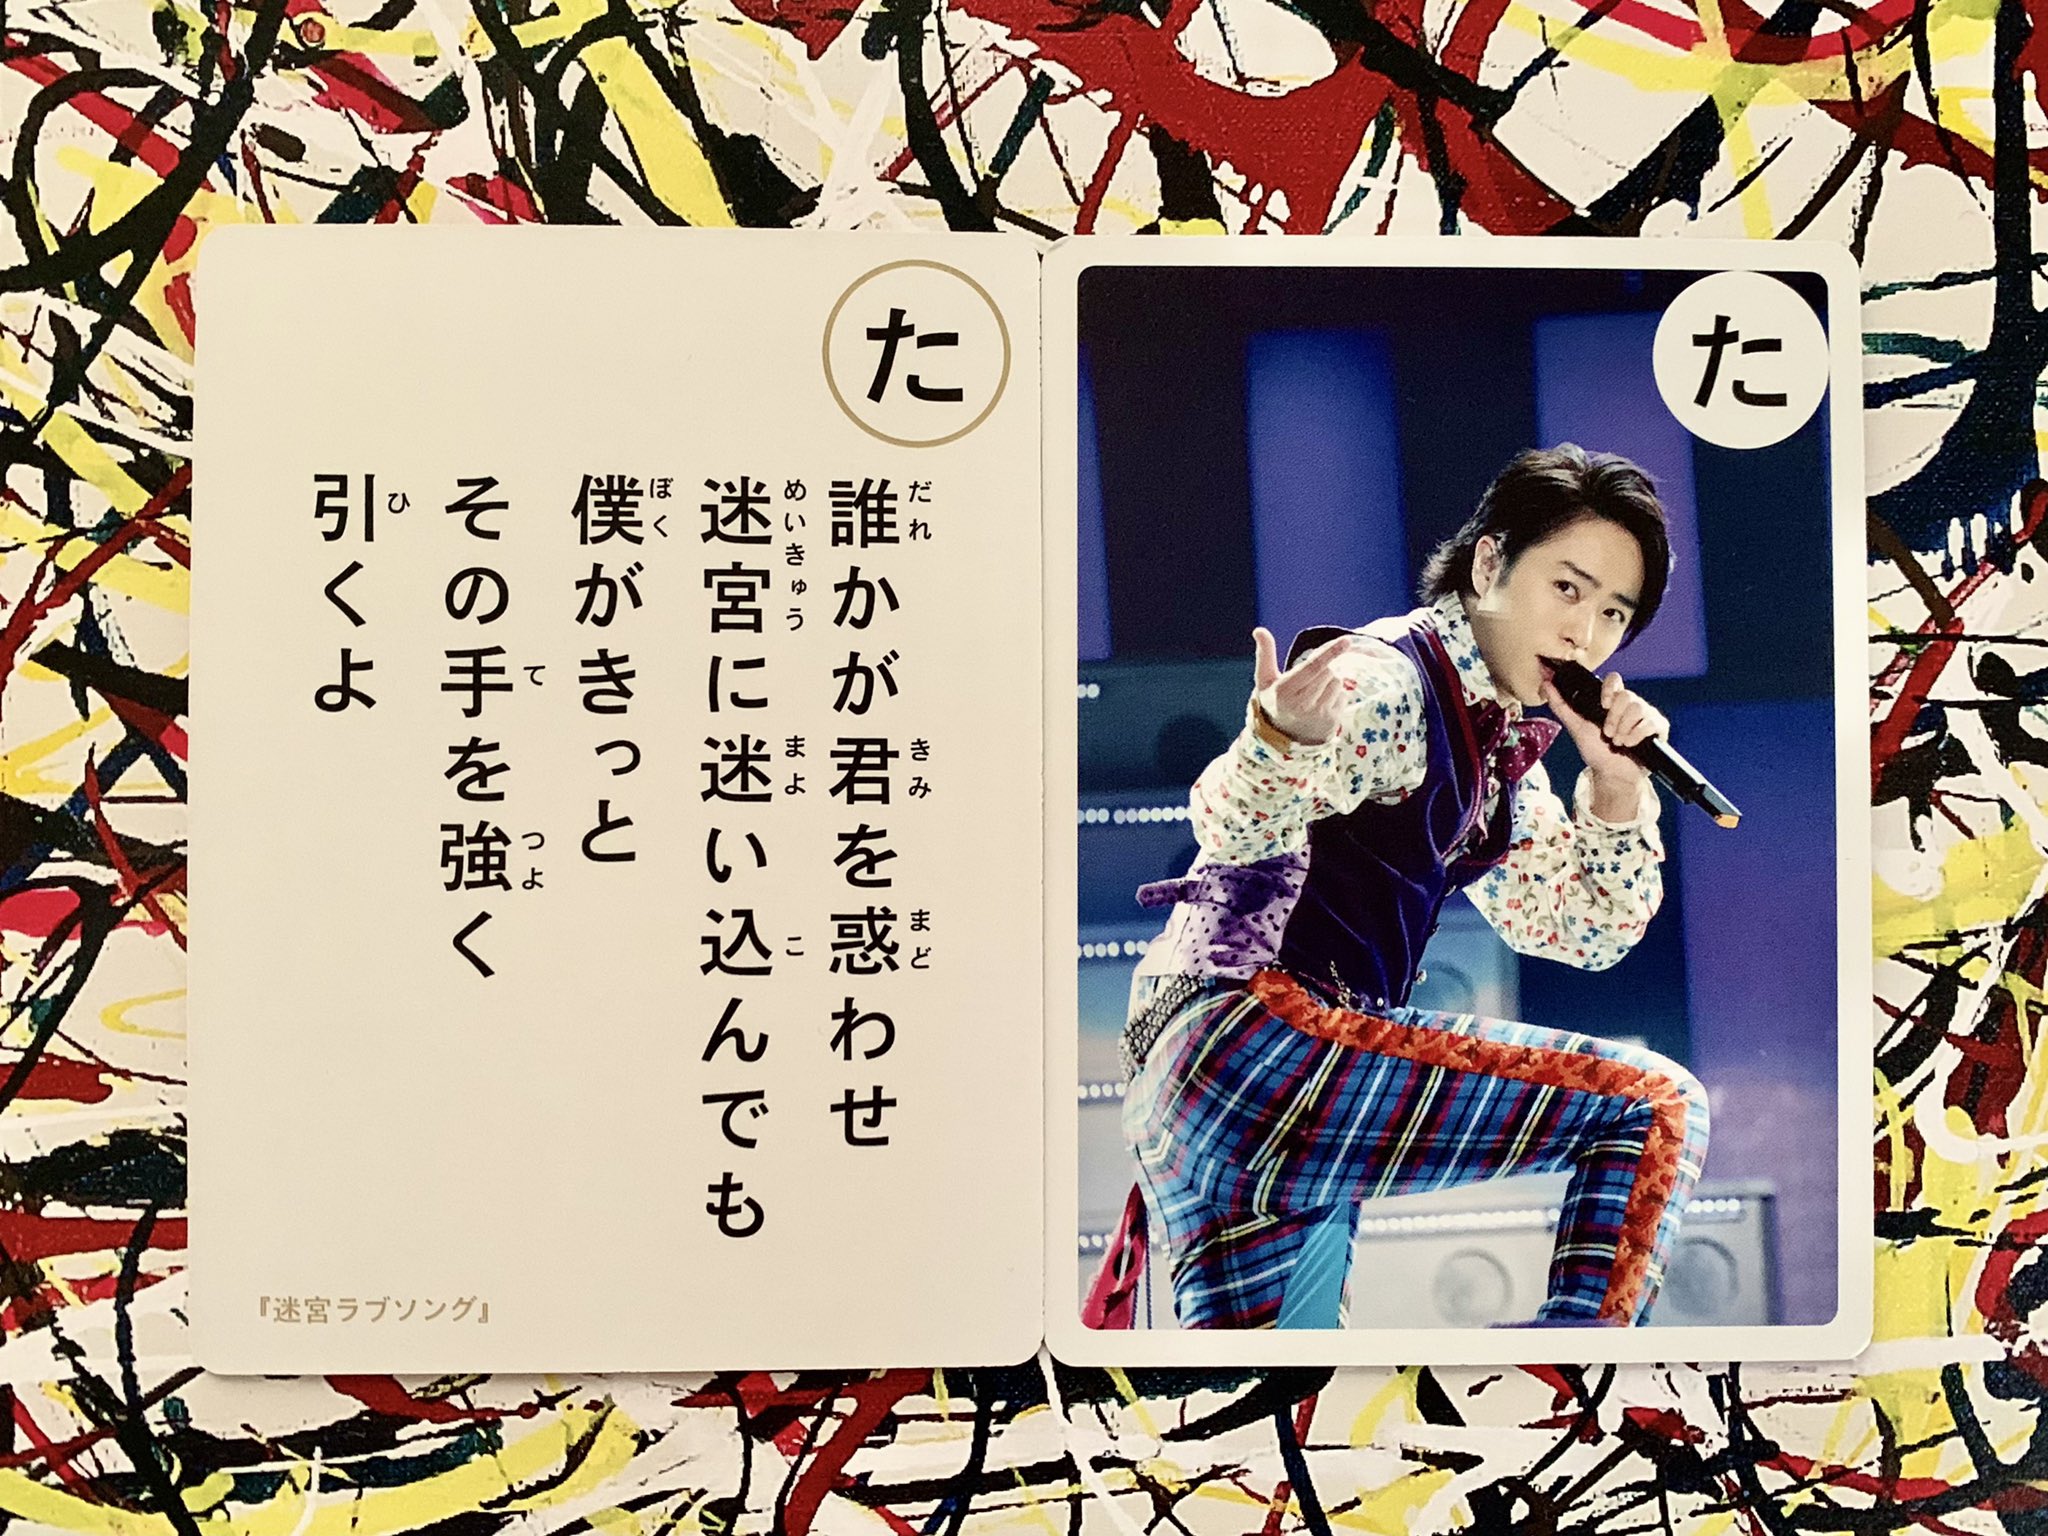 た
誰かが君を惑わせ
迷宮に迷い込んでも
僕がきっと
その手を強く
引くよ
『迷宮ラブソング』
た